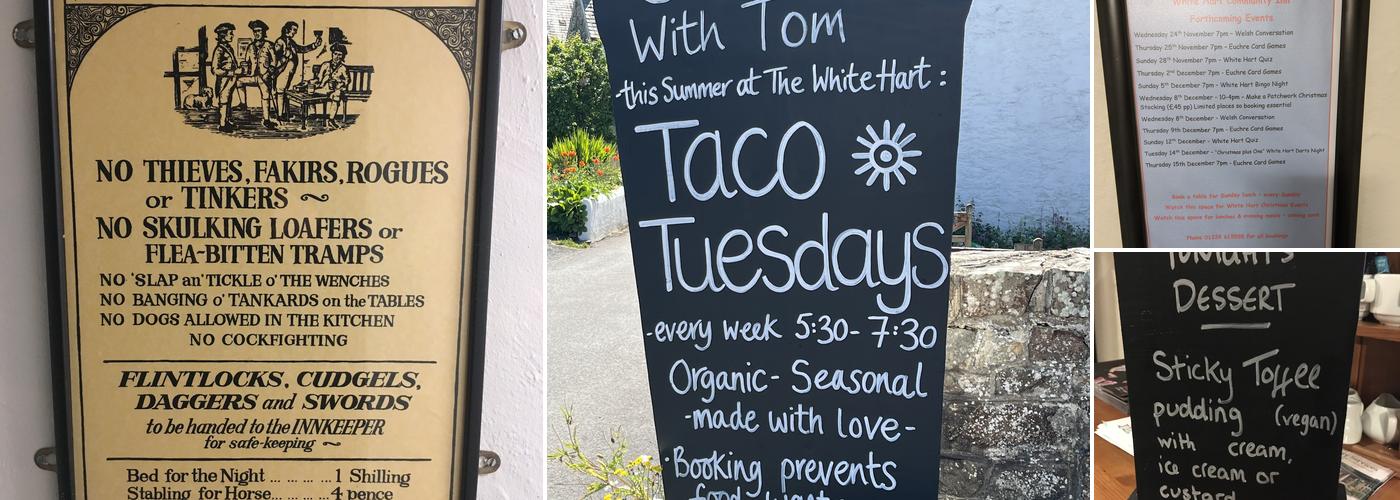 NO THIEVES, FAKIRS, ROGUES
or TINKERS
NO SKULKING LOAFERS or
FLEA-BITTEN TRAMPS
NO 'SLAP an' TICKLE o' THE WENCHES
NO BANGING o' TANKARDS on the TABLES
NO DOGS ALLOWED IN THE KITCHEN
NO COCKFIGHTING
FLINTLOCKS, CUDGELS,
DAGGERS and SWORDS
to be handed to the INNKEEPER
for safe-keeping
Bed for the Night ... ... ... ... 1 Shilling
Stabling for Horse... ... ... 4 pence
With Tom
-this Summer at The White Hart :
Taco
Tuesdays
-every week 5:30- 7:30
Organic- Seasonal
-made with love-
·Booking prevents
food waste
White Hart Community Inn
Forthcoming Events
Wednesday 24th November 7pm - Welsh Conversation
Thursday 25th November 7pm - Euchre Card Games
Sunday 28th November 7pm - White Hart Quiz
Thursday 2nd December 7pm - Euchre Card Games
Sunday 5th December 7pm - White Hart Bingo Night
Wednesday 8th December - 10-4pm - Make a Patchwork Christmas
Stocking (£45 pp) Limited places so booking essential
Wednesday 8th December - Welsh Conversation
Thursday 9th December 7pm - Euchre Card Games
Sunday 12th December - White Hart Quiz
Tuesday 14th December - "Christmas plus One" White Hart Darts Night
Thursday 15th December 7pm - Euchre Card Games
Book a table for Sunday lunch - every Sunday
Watch this space for White Hart Christmas Events
Watch this space for lunches & evening meals - coming soon
Phone 01239 for all bookings
TONIGHT'S
DESSERT
Sticky Toffee
pudding (vegan)
with cream,
ice cream or
custard